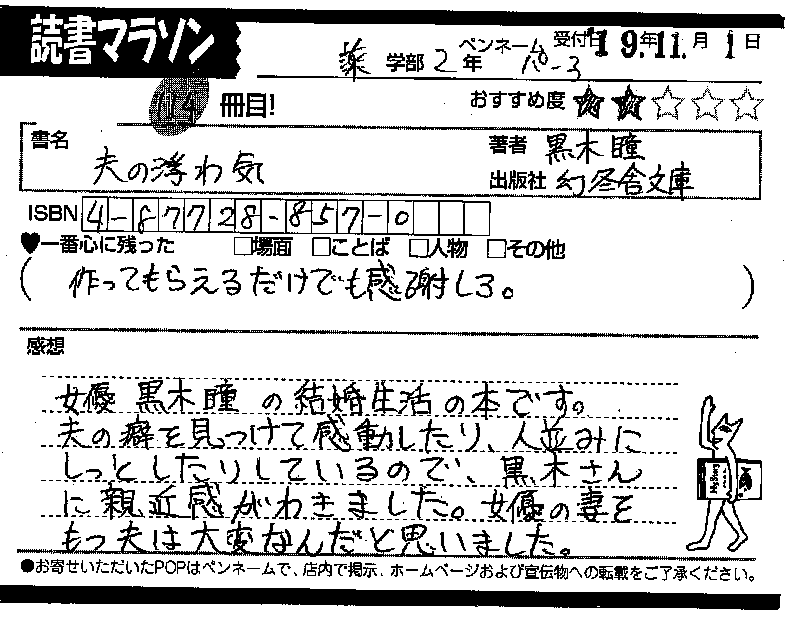 読書マラソン
薬 学部 2 年 ペンネーム パー3 受付日 19年11月1日
114 冊目! おすすめ度 ★★☆☆☆
書名 夫の浮わ気 著者 黒木瞳
出版社 幻冬舎文庫
ISBN 4-87728-857-0
♥一番心に残った □場面 □ことば □人物 □その他
(作ってもらえるだけでも感謝しろ。)
感想
女優 黒木瞳 の結婚生活の本です。
夫の癖を見つけて感動したり、人並みに
しっとしたりしているので、黒木さん
に親近感がわきました。女優の妻を
もつ夫は大変なんだと思いました。
●お寄せいただいたPOPはペンネームで、店内で掲示、ホームページおよび宣伝物への転載をご了承ください。